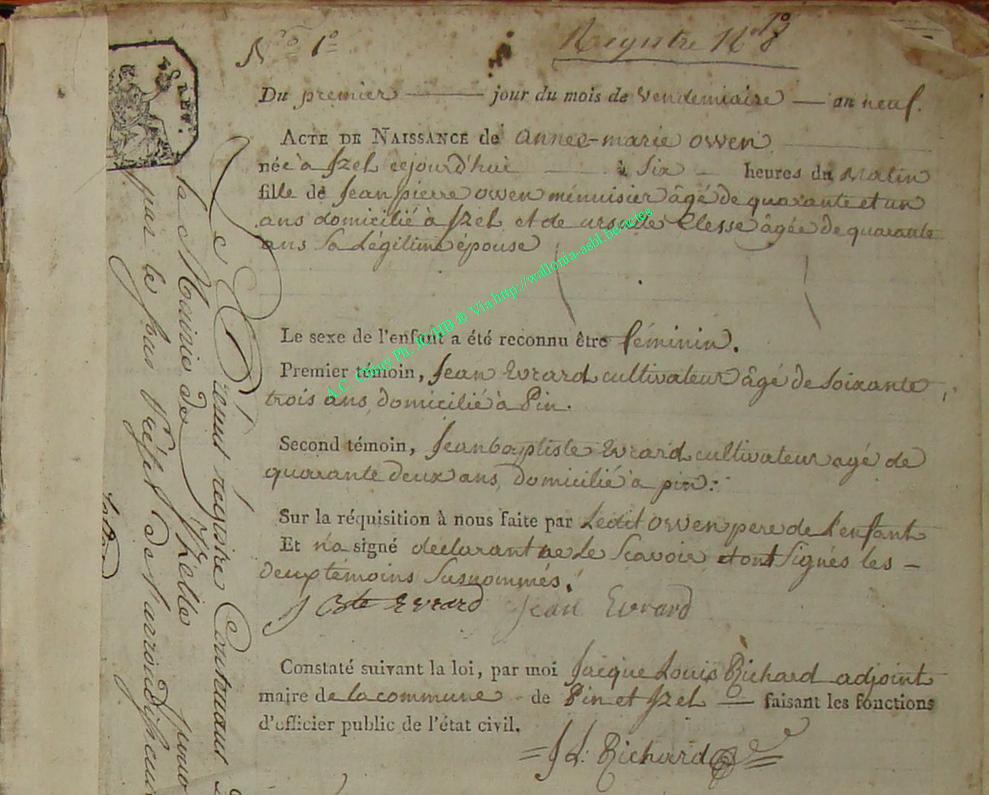 N.º 1º
Registre Nº 8
Du premier jour du mois de vendemiaire an neuf.
ACTE DE NAISSANCE de annes-marie owen
née à Izel cejourd'hui à Six heures du Matin
fille de Jean pierre owen ménuisier âgé de quarante et un
ans domicilié à Izel et de ursule Clesse âgée de quarante
ans Sa Légitime épouse
Le sexe de l'enfant a été reconnu être féminin.
Premier témoin, Jean Evrard cultivateur âgé de Soixante
trois ans, domicilié à Pin.
Second témoin, Jean baptiste Evrard cultivateur agé de
quarante deux ans, domicilié à pin.
Sur la réquisition à nous faite par Ledit owen pere de l'enfant
Et n'a signé declarant ne Le Scavoir et ont Signés les
deux témoins Susnommés.
J Bte Evrard Jean Evrard
Constaté suivant la loi, par moi Jacque Louis Richard adjoint
maire de la commune de Pin et Izel faisant les fonctions
d'officier public de l'état civil.
J L. Richard
Le Présent registre Contenant
la Mairie de
par le sous préfet de l'arrondissement
REP.
Via http://wallonia-asbl.be/actes